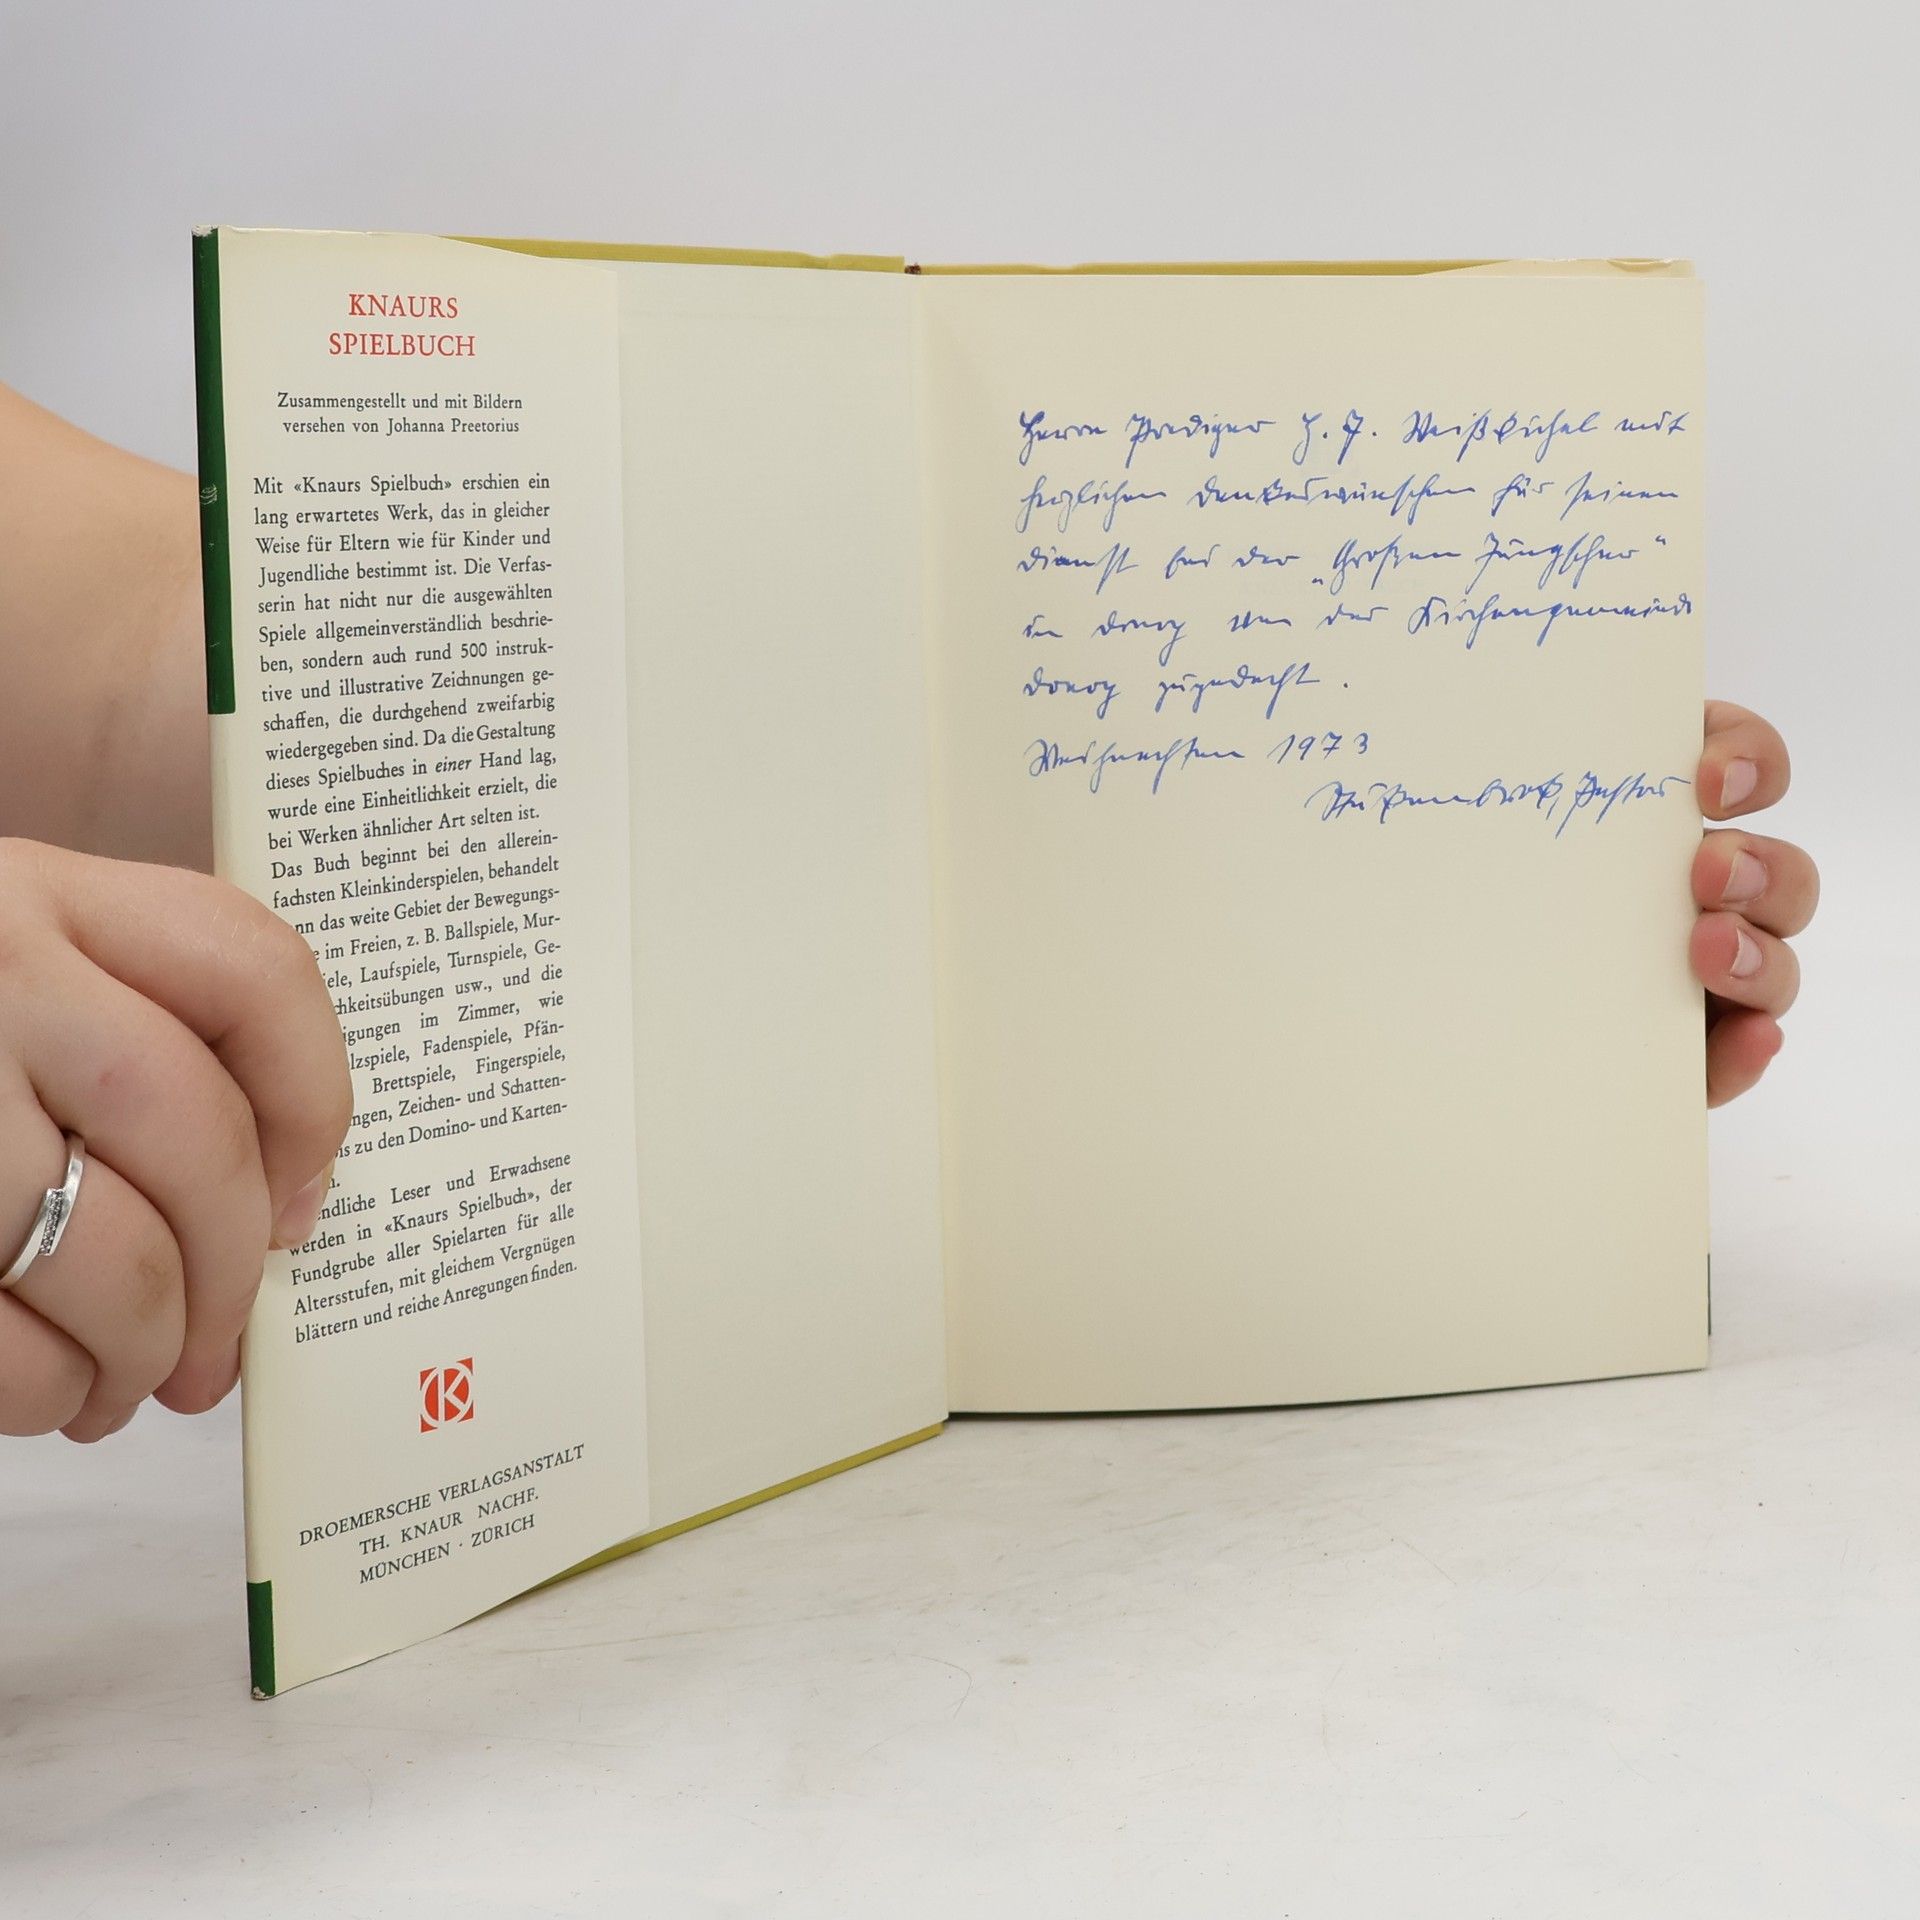 KNAURS
SPIELBUCH
Zusammengestellt und mit Bildern
versehen von Johanna Preetorius
Mit «Knaurs Spielbuch» erschien ein
lang erwartetes Werk, das in gleicher
Weise für Eltern wie für Kinder und
Jugendliche bestimmt ist. Die Verfas-
serin hat nicht nur die ausgewählten
Spiele allgemeinverständlich beschrie-
ben, sondern auch rund 500 instruk-
tive und illustrative Zeichnungen ge-
schaffen, die durchgehend zweifarbig
wiedergegeben sind. Da die Gestaltung
dieses Spielbuches in einer Hand lag,
wurde eine Einheitlichkeit erzielt, die
bei Werken ähnlicher Art selten ist.
Das Buch beginnt bei den allerein-
fachsten Kleinkinderspielen, behandelt
nn das weite Gebiet der Bewegungs-
e im Freien, z. B. Ballspiele, Mur-
iele, Laufspiele, Turnspiele, Ge-
chkeitsübungen usw., und die
igungen im Zimmer, wie
lzspiele, Fadenspiele, Pfän-
Brettspiele, Fingerspiele,
ngen, Zeichen- und Schatten-
is zu den Domino- und Karten-
n.
endliche Leser und Erwachsene
werden in «Knaurs Spielbuch», der
Fundgrube aller Spielarten für alle
Altersstufen, mit gleichem Vergnügen
blättern und reiche Anregungen finden.
K
DROEMERSCHE VERLAGSANSTALT
TH. KNAUR NACHF.
MÜNCHEN · ZÜRICH
Herrn Prediger H. J. mit
herzlichen für seinen
Dienst bei der „Großen Jungschar“
in von der Kirchengemeinde
zugedacht.
Weihnachten 1973
Pastor